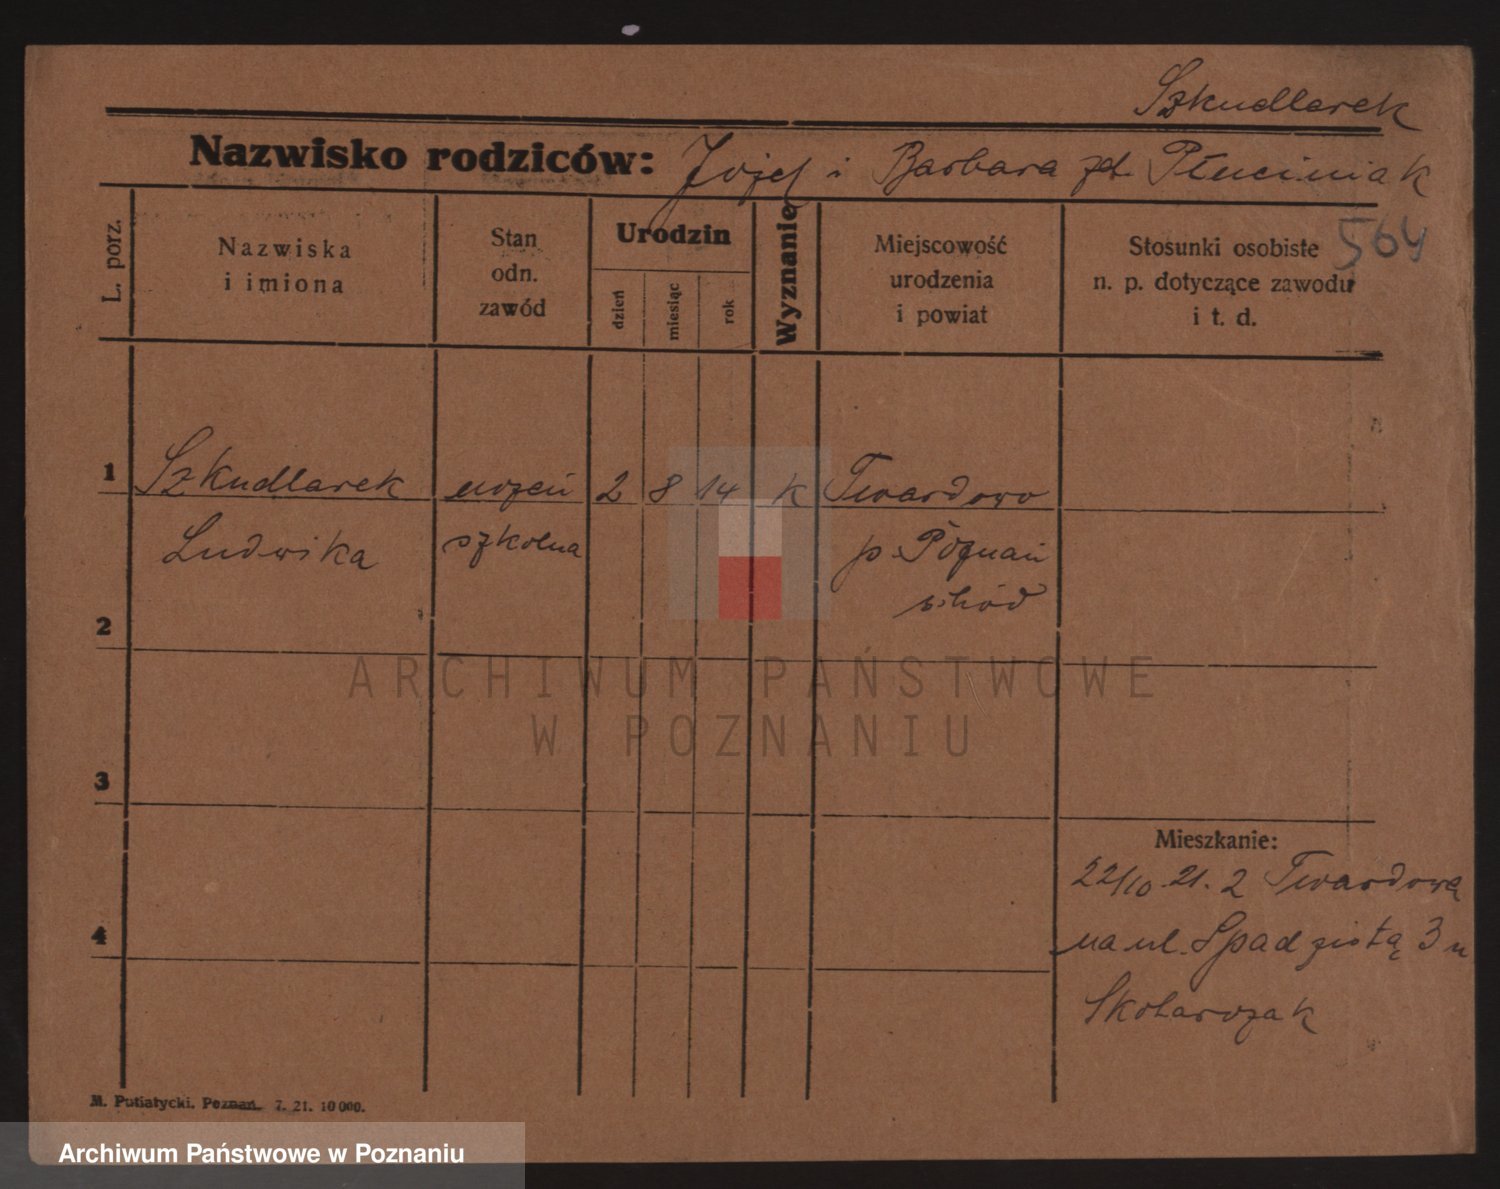 Szkudlarek
Nazwisko rodziców: Józef i Barbara zd. Płuciniak
564
L. porz.
Nazwiska
i imiona
Stan
odn.
zawód
Urodzin
dzień
miesiąc
rok
Wyznanie
Miejscowość
urodzenia
i powiat
Stosunki osobiste
n. p. dotyczące zawodu
i t. d.
1 Szkudlarek uczeń 2 8 14 k Twardowo
Ludwika szkolna p. Poznań
wschód
2
3
4
Mieszkanie:
22/10. 21. z Twardowa
na ul. Spadzistą 3 u
Skotarczak
M. Putiatycki. Poznań. 7. 21. 10 000.
ARCHIWUM PAŃSTWOWE
W POZNANIU
Archiwum Państwowe w Poznaniu